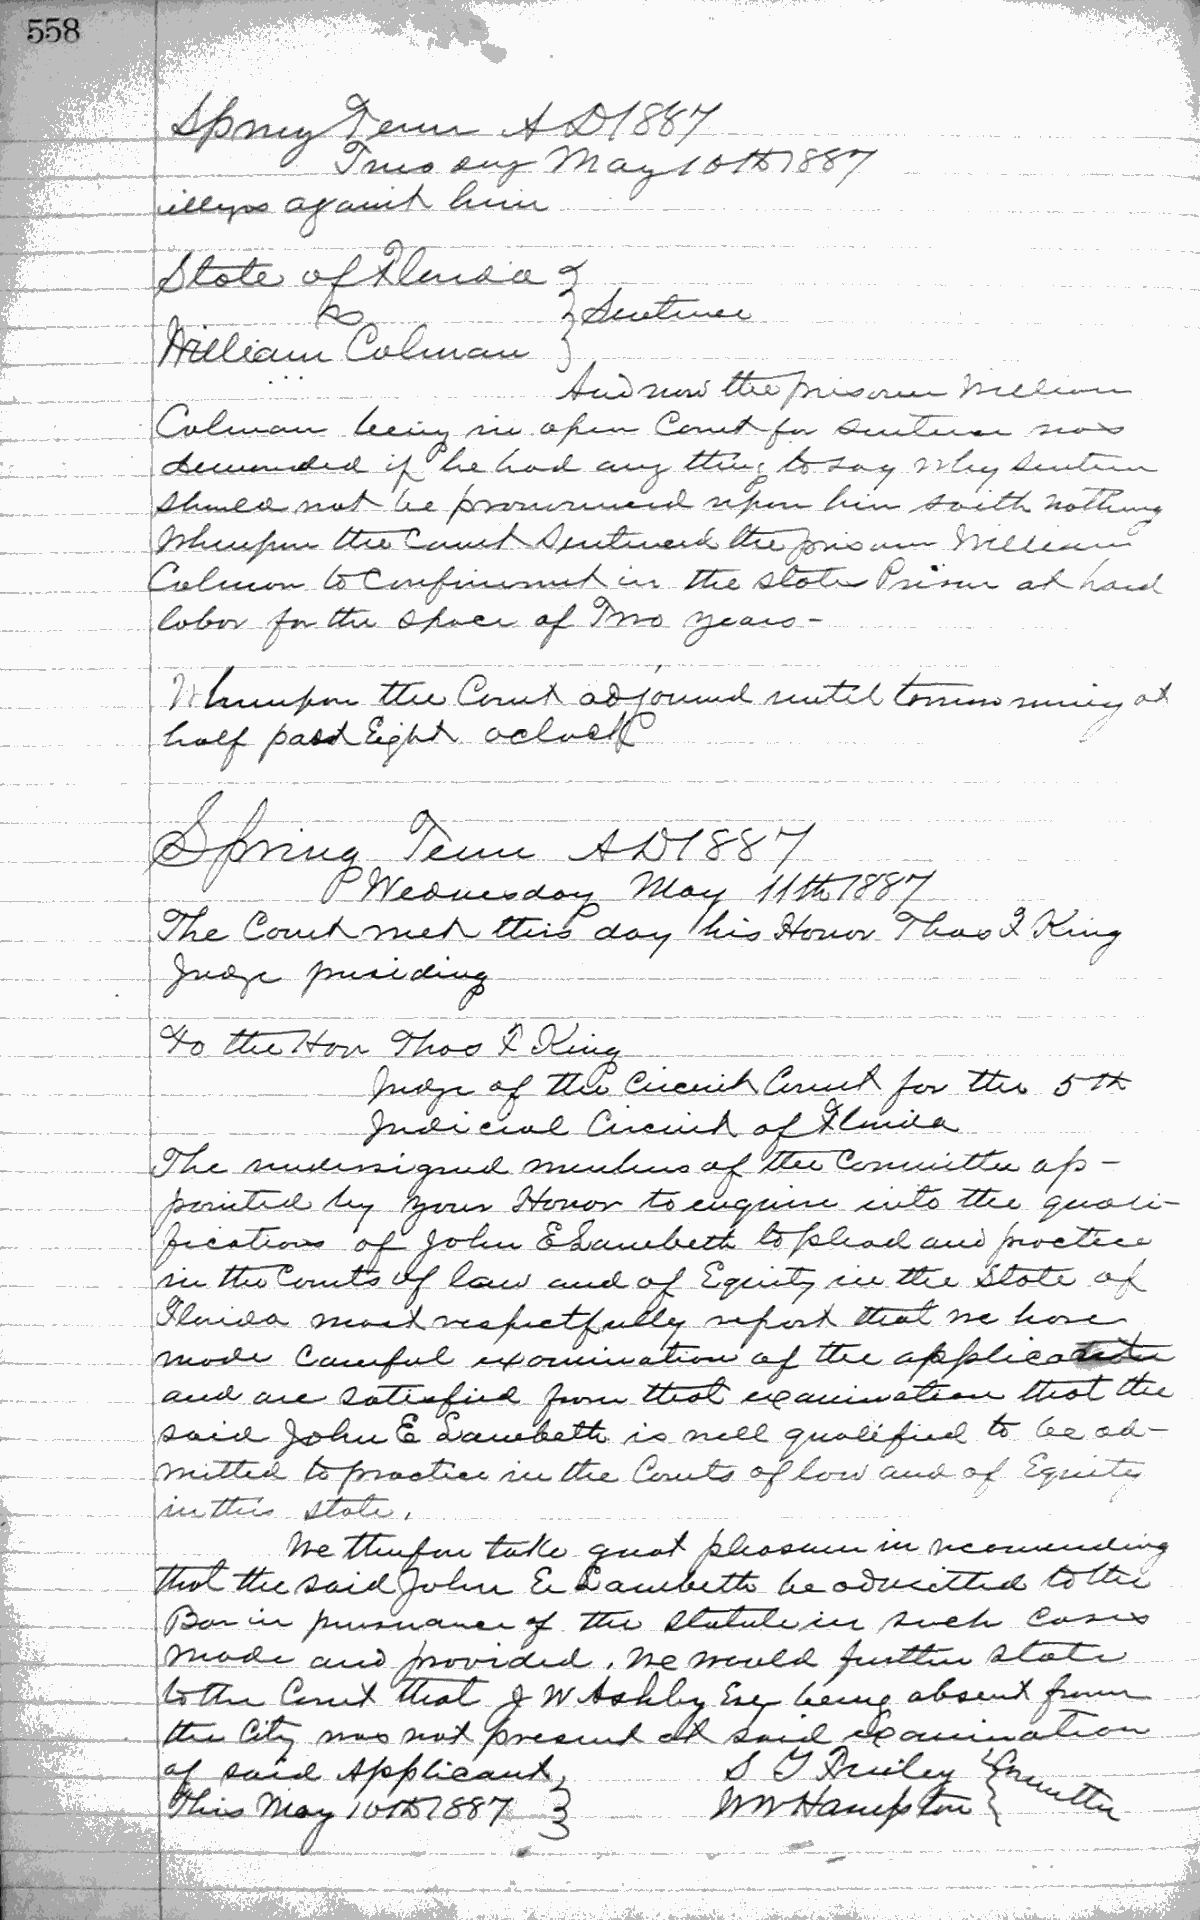 558
Spring Term AD 1887
Tuesday May 10th 1887
against him
State of Florida }
vs } Sentence
William Colman }
And now the prisoner William
Colman being in open Court for sentence was
demanded if he had any thing to say why sentence
should not be pronounced upon him saith nothing
Whereupon the Court Sentenced the prisoner William
Colman to confinement in the state Prison at hard
labor for the space of Two years -
Whereupon the Court adjourned until tomorrow morning at
half past Eight oclock
Spring Term AD 1887
Wednesday May 11th 1887
The Court met this day his Honor Thos F King
Judge presiding
To the Hon Thos F King
Judge of the Circuit Court for the 5th
Judicial Circuit of Florida
The undersigned members of the Committee ap-
pointed by your Honor to enquire into the quali-
fications of John E Lambeth to plead and practice
in the Courts of law and of Equity in the State of
Florida most respectfully report that we have
made careful examination of the
and are satisfied from that examination that the
said John E Lambeth is well qualified to be ad-
mitted to practice in the Courts of law and of Equity
in this state.
We therefore take great pleasure in recomending
that the said John E Lambeth be admitted to the
Bar in pursuance of the statute in such cases
made and provided. We would further state
to the Court that J W Ashby Esq being absent from
the City was not present at said examination
of said Applicant, S Y Finley } Committee
This May 10th 1887 } W W Hampton }